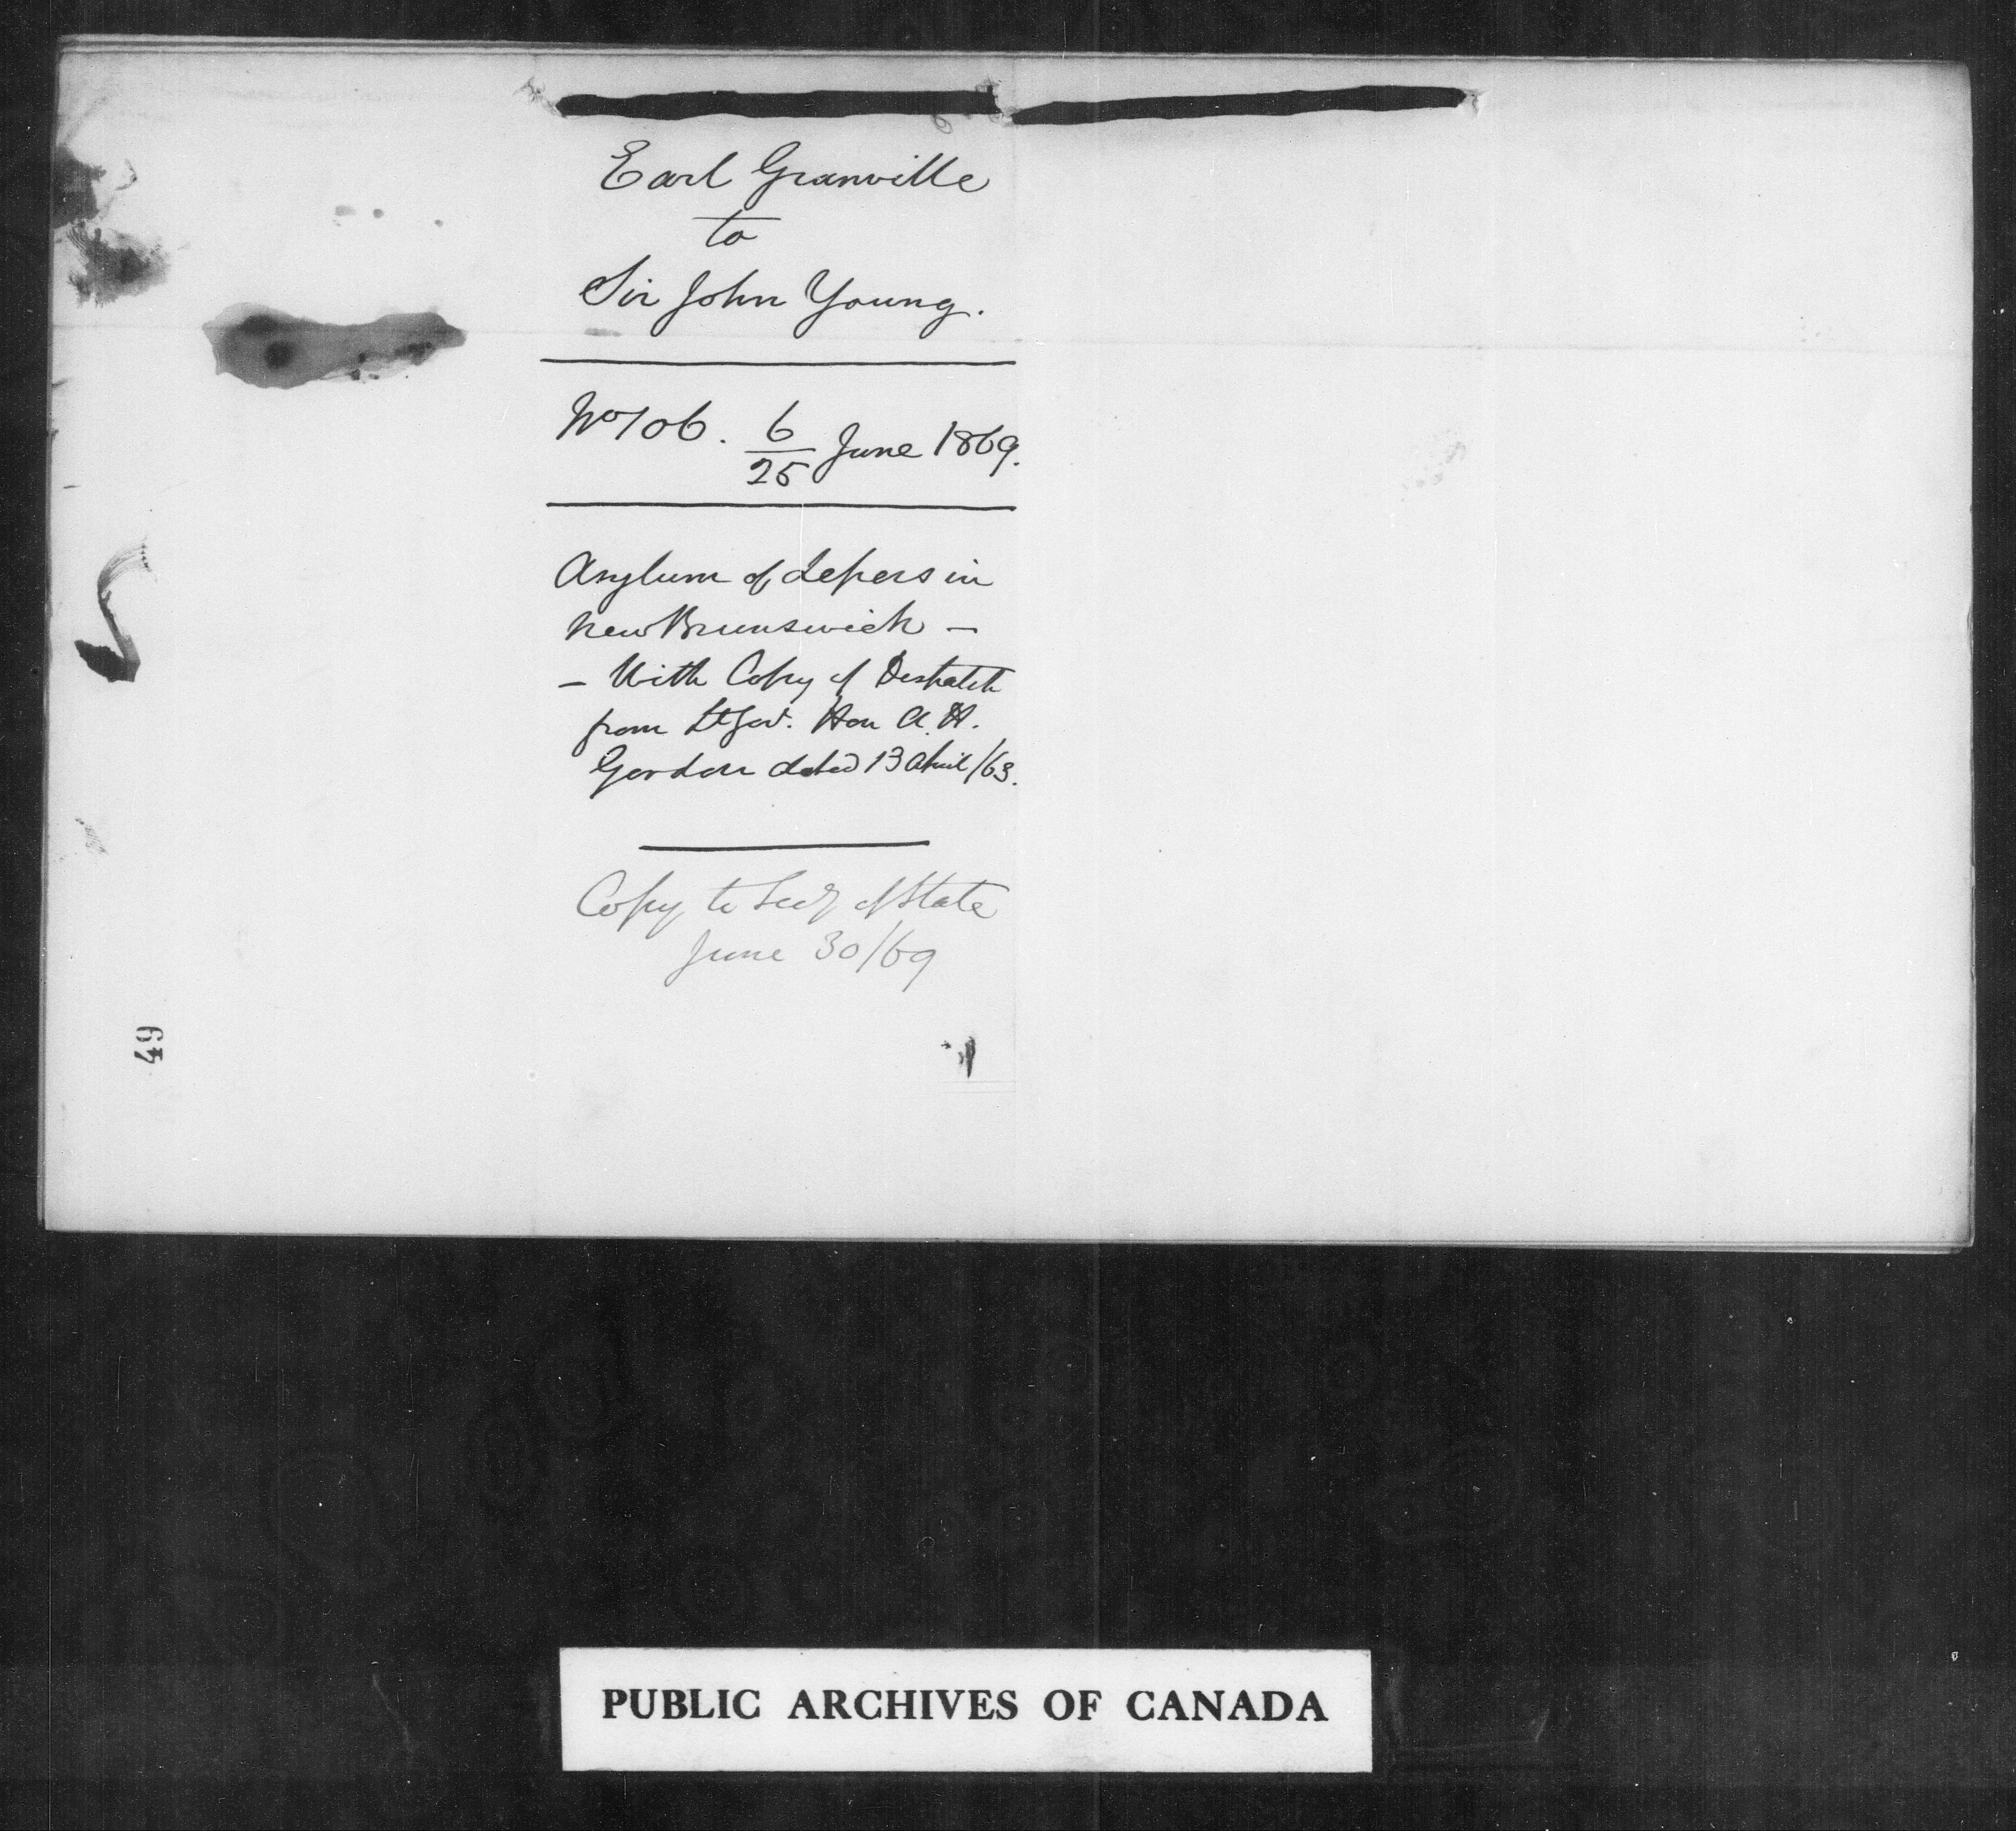 Earl Granville
to
Sir John Young.
No 106. 6/25 June 1869.
Asylum of Lepers in
New Brunswick —
— With Copy of Despatch
from Lt Gov. Hon A. H.
Gordon dated 13 April /63.
Copy to Secy of State
June 30/69
49
PUBLIC ARCHIVES OF CANADA